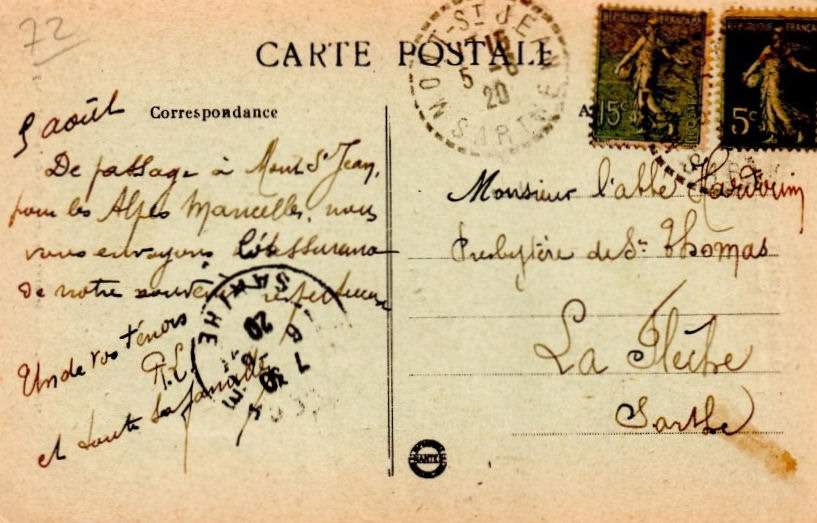 72
CARTE POSTALE
MONT-ST JEAN
15
5 - 8
20
SARTHE
REPUBLIQUE FRANÇAISE
15c
REPUBLIQUE FRANÇAISE
5c
Correspondance
5 août
De passage à Mont St Jean,
pour les Alpes Mancelles, nous
vous envoyons
de notre souvenir respectueux
Un de vos ténors
et toute sa famille
SARTHE
7
6
20
Monsieur l'abbé Hardouin
Presbytère de St Thomas
La Flèche
Sarthe
NANTES